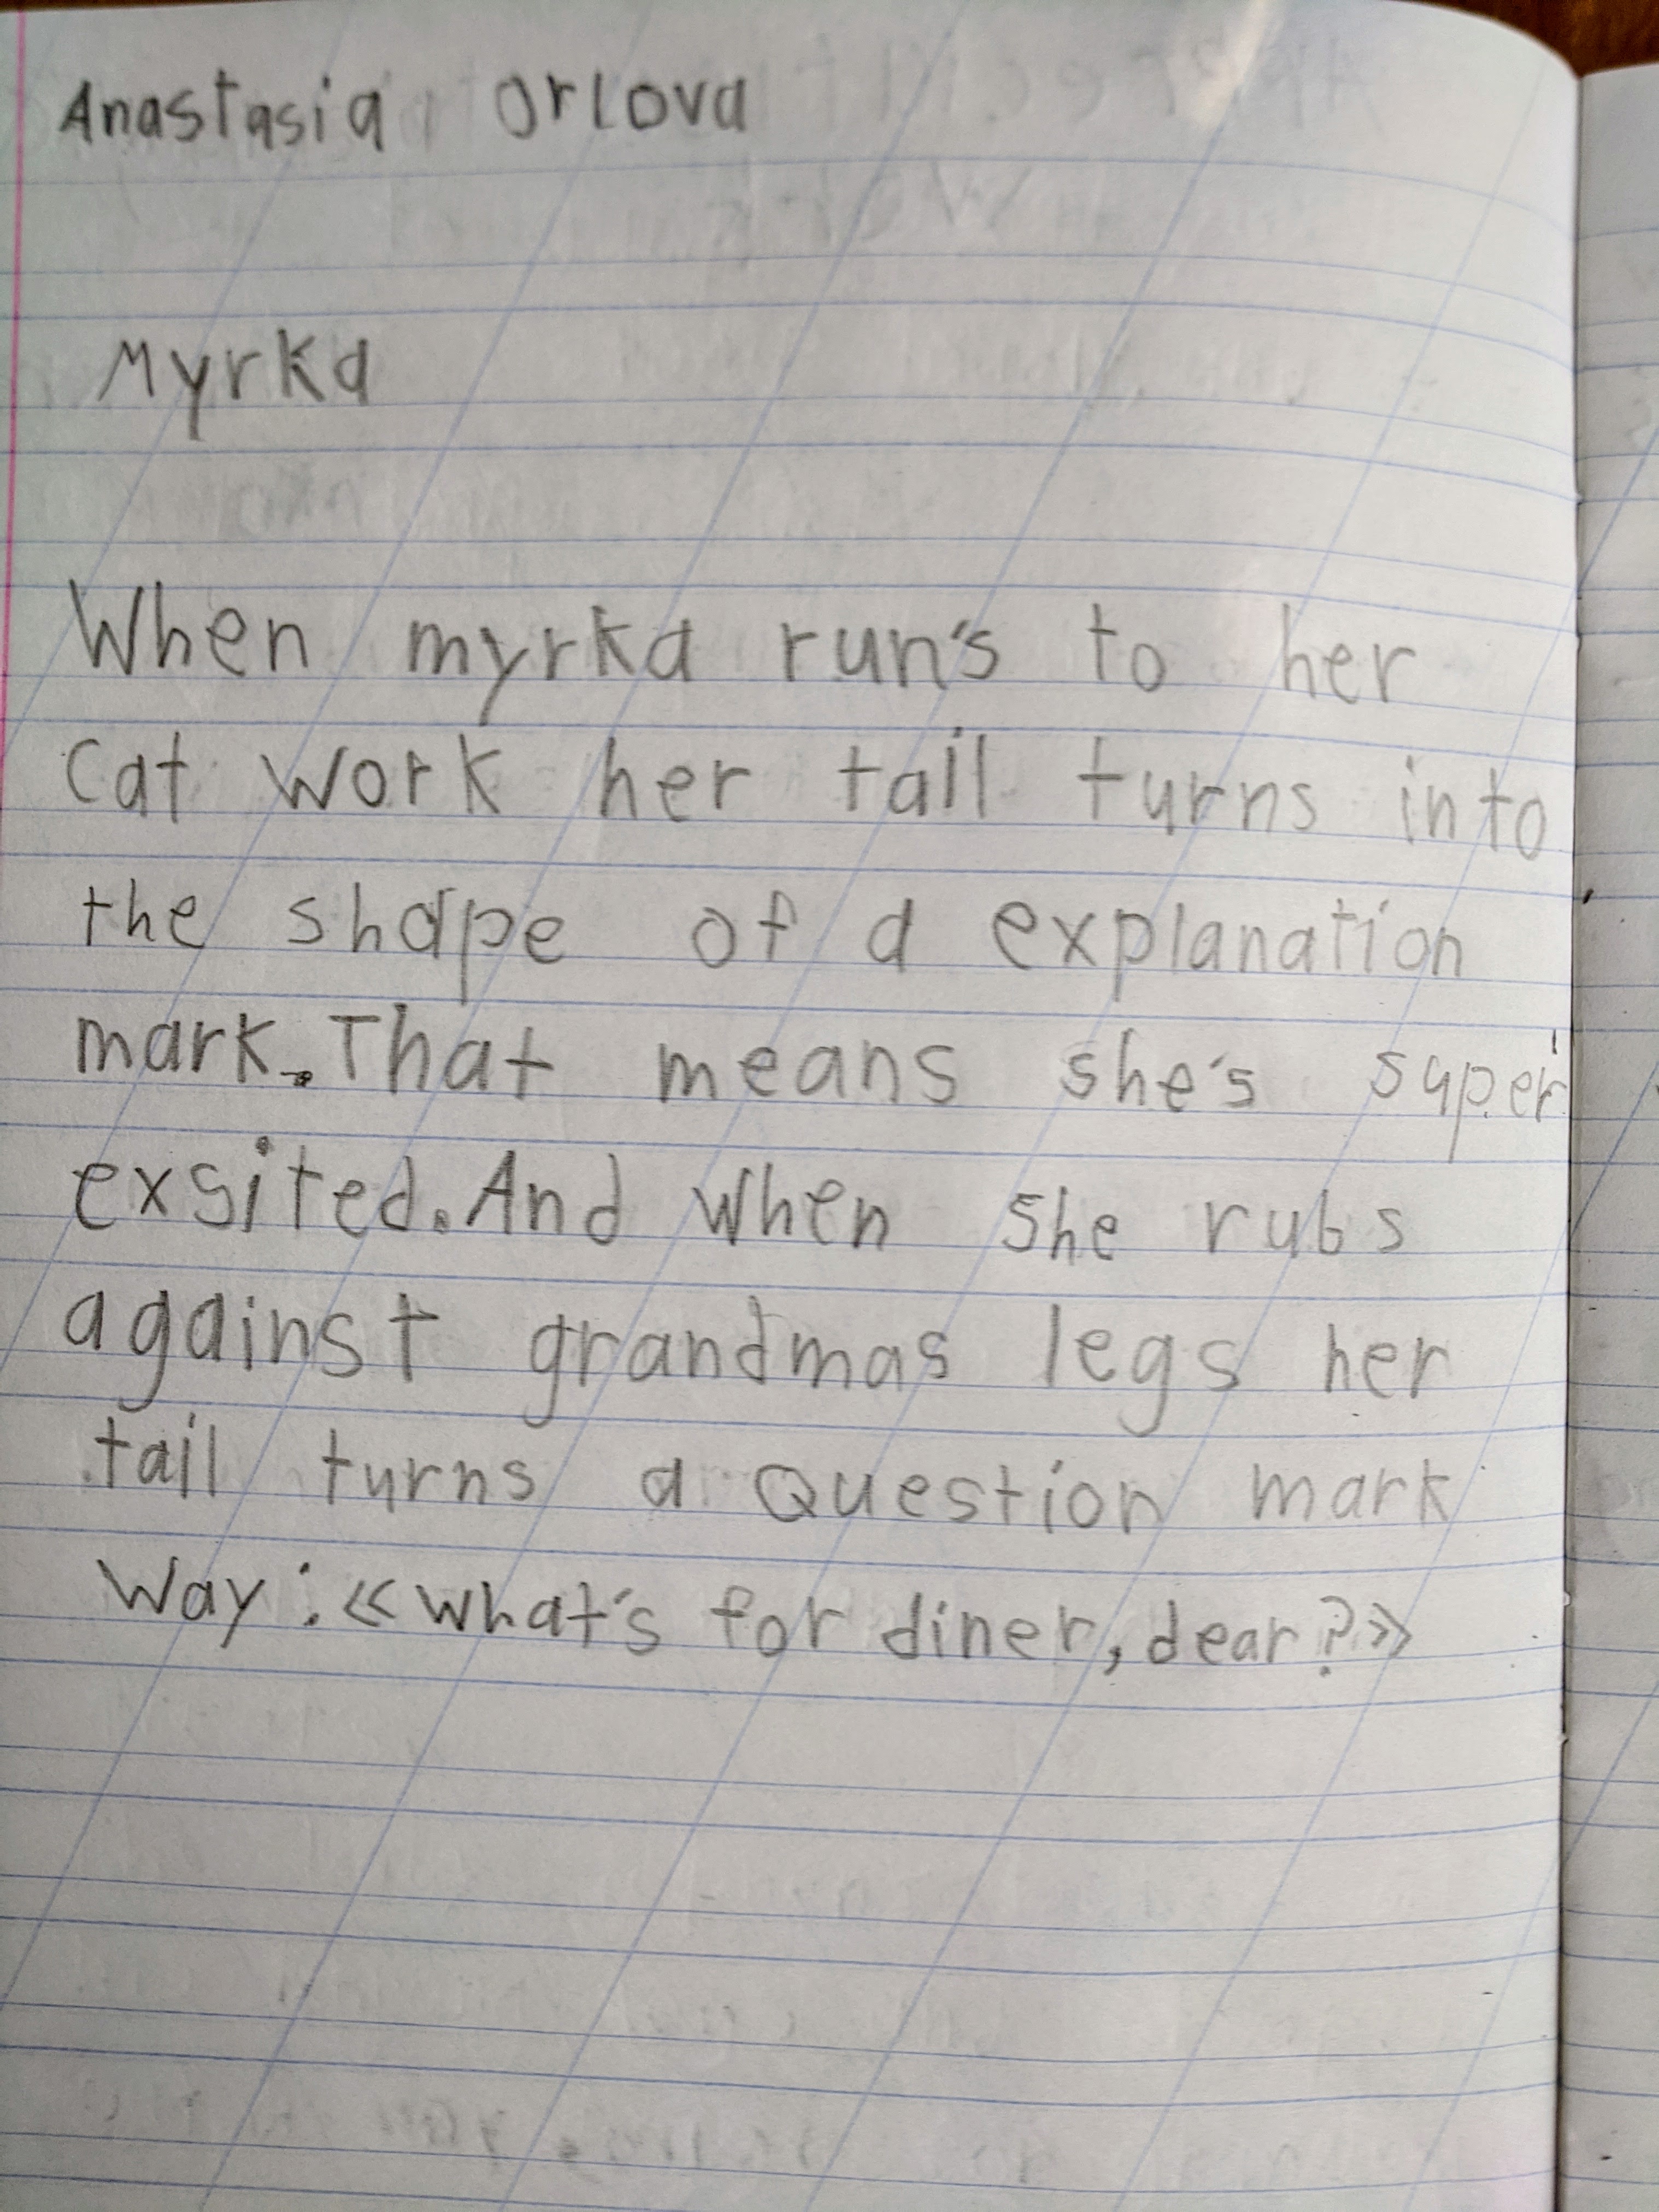 Anastasia Orlova
Myrka
When myrka run's to her
Cat work her tail turns into
the shape of a explanation
mark. That means she's super
exsited. And when she rubs
against grandmas legs her
tail turns a Question mark
Way: «What's for diner, dear?»